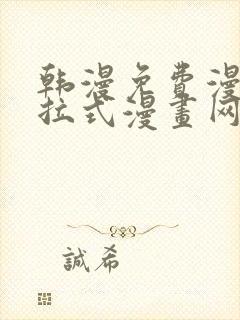 韩漫免费漫
拉式漫畫网
誠希